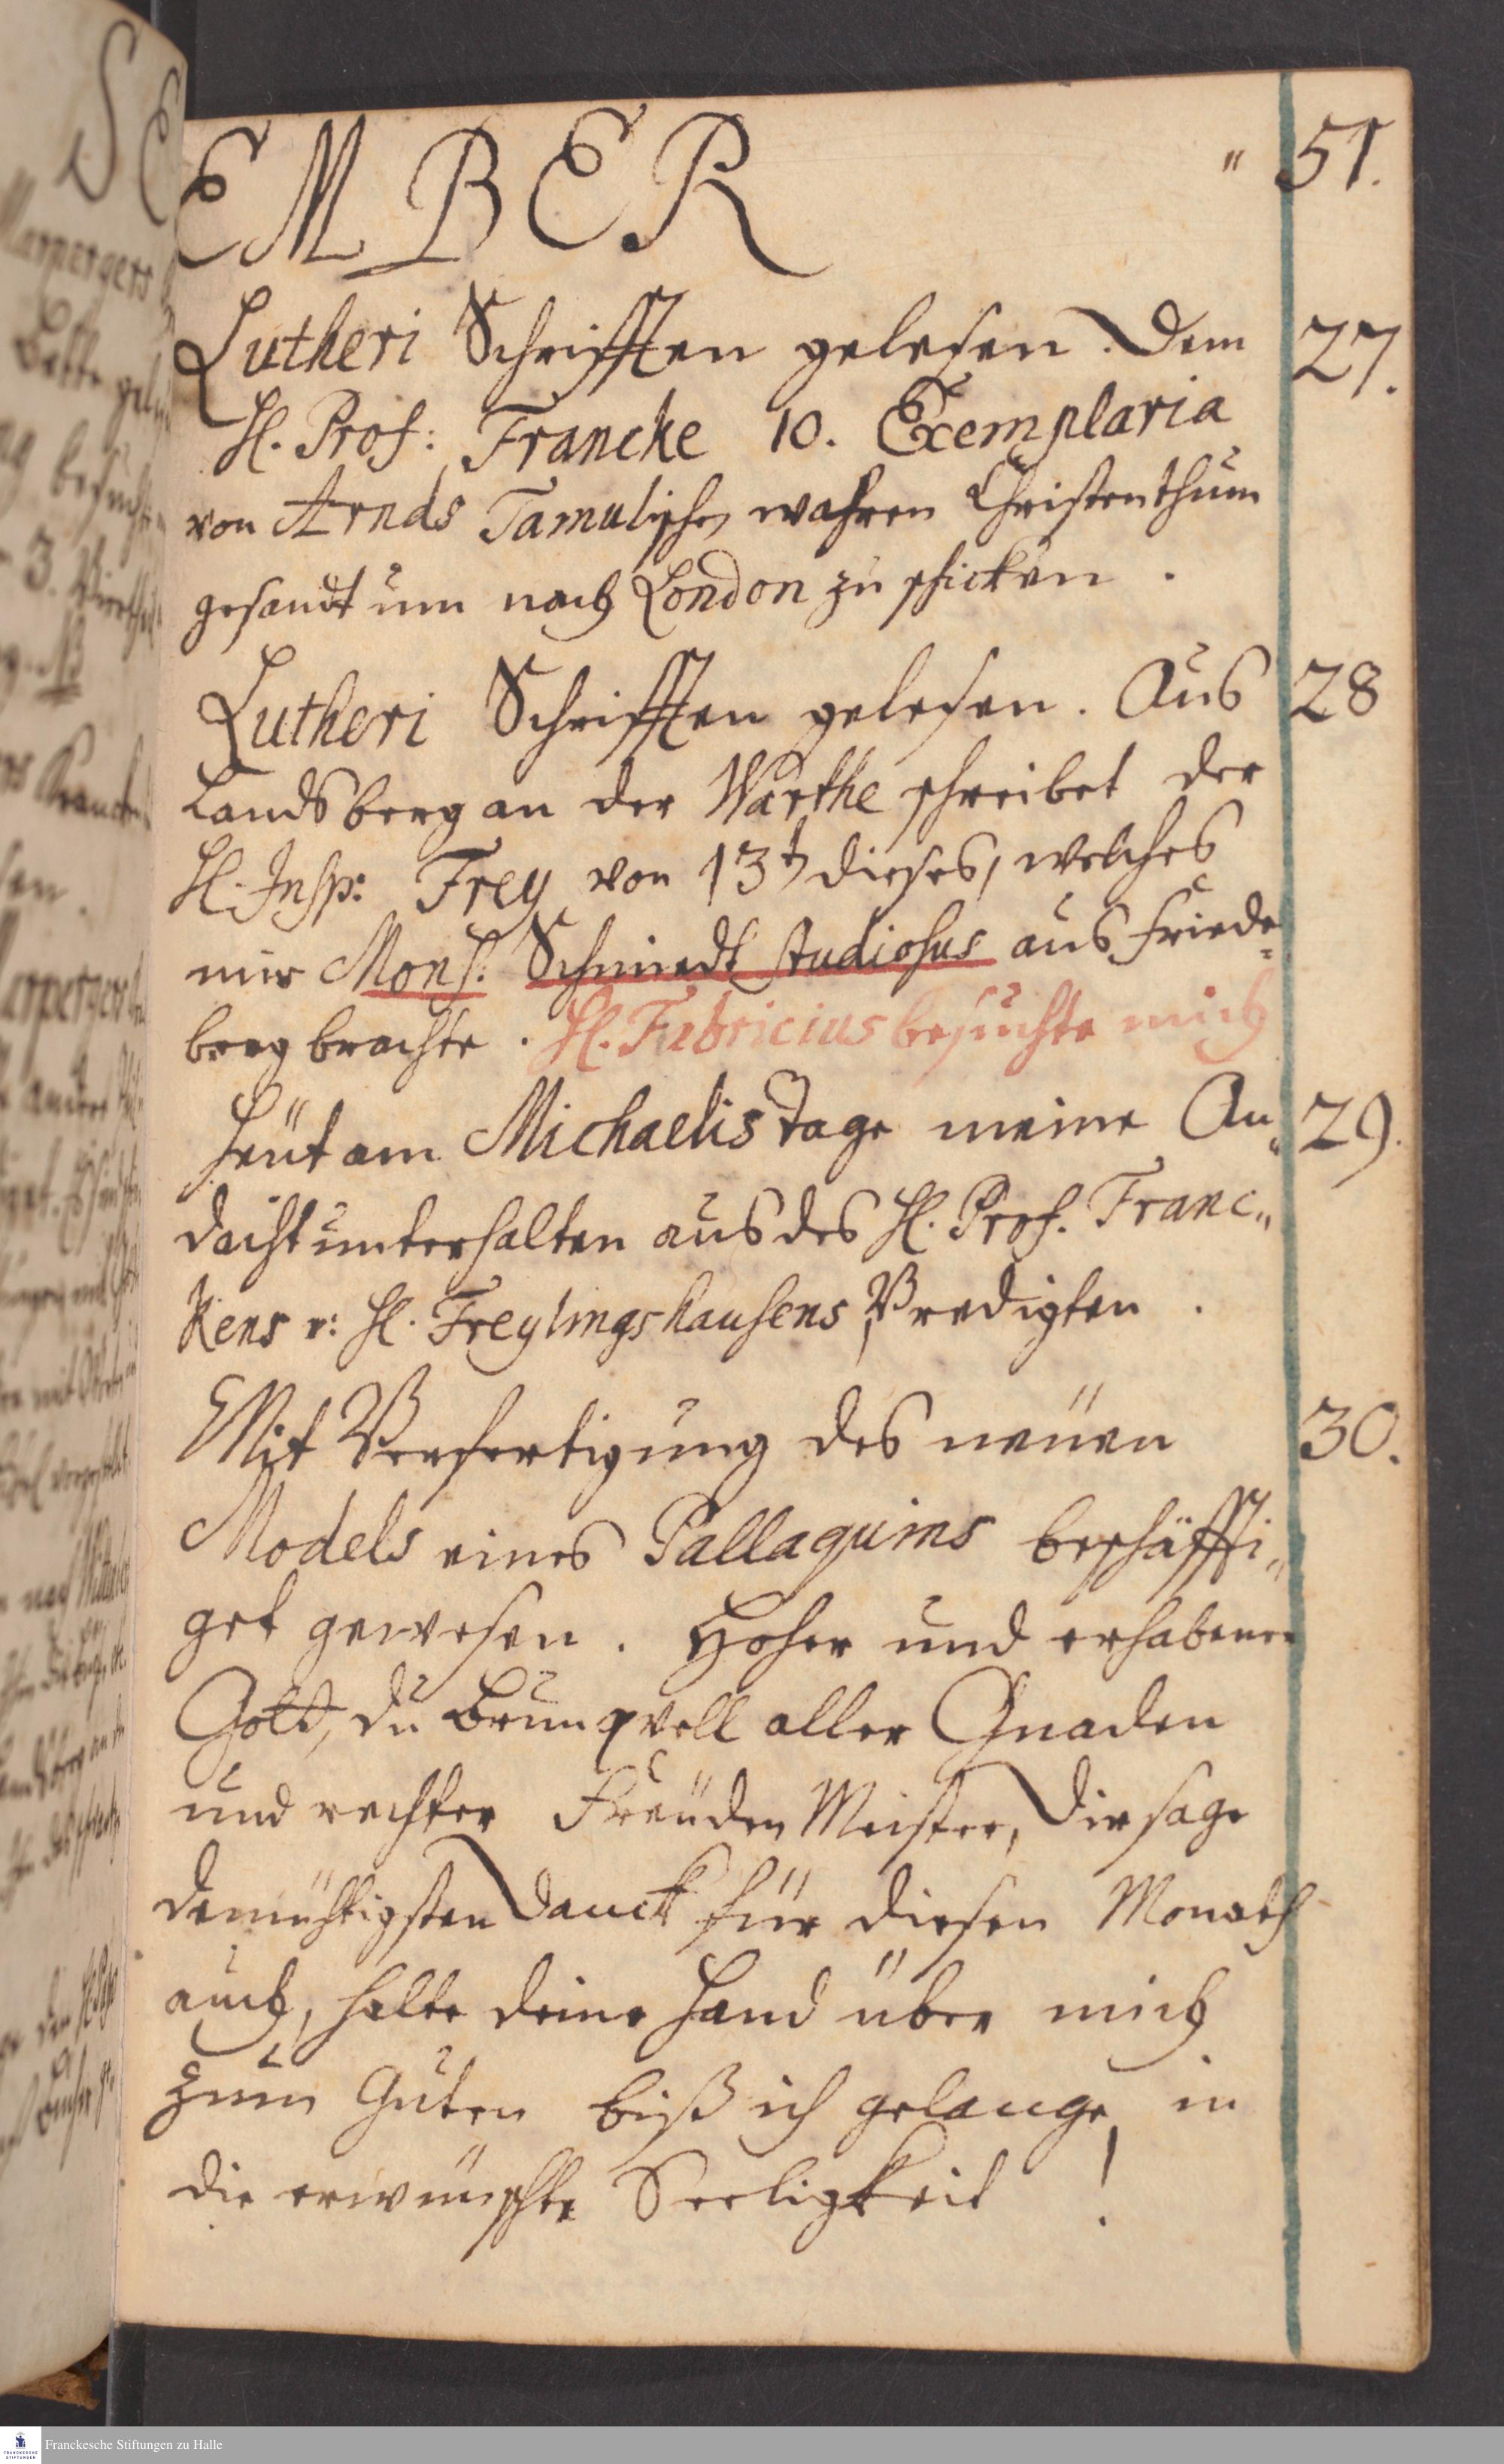 EMBER " 51.
Lutheri Schrifften gelesen. Dem 27.
H. Prof: Francke 10. Exemplaria
von Arnds Tamulischen wahren Christenthum
gesandt um nach London zu schicken.
Lutheri Schrifften gelesen. Aus 28
Landsberg an der Warthe schreibet der
H. Insp: Frey von 13t dieses, welches
mir Mons: Schmiedt studiosus aus Friede=
berg brachte. H. Fabricius besuchte mich
Heut am Michaelis Tage meine An= 29.
dacht unterhalten aus des H. Prof. Franc=
kens u: H. Freylingshausens Predigten.
Mit Verfertigung des neuen 30.
Models eines Pallaquins beschäffti=
get gewesen. Hoher und erhabener
Gott, du Brunqvell aller Gnaden
und rechter Freuden Meister, Dir sage
demühtigsten Danck für diesen Monath
auch, halte deine Hand über mich
zum Guten biß ich gelange in
die erwünschte Seeligkeit!
Franckesche Stiftungen zu Halle